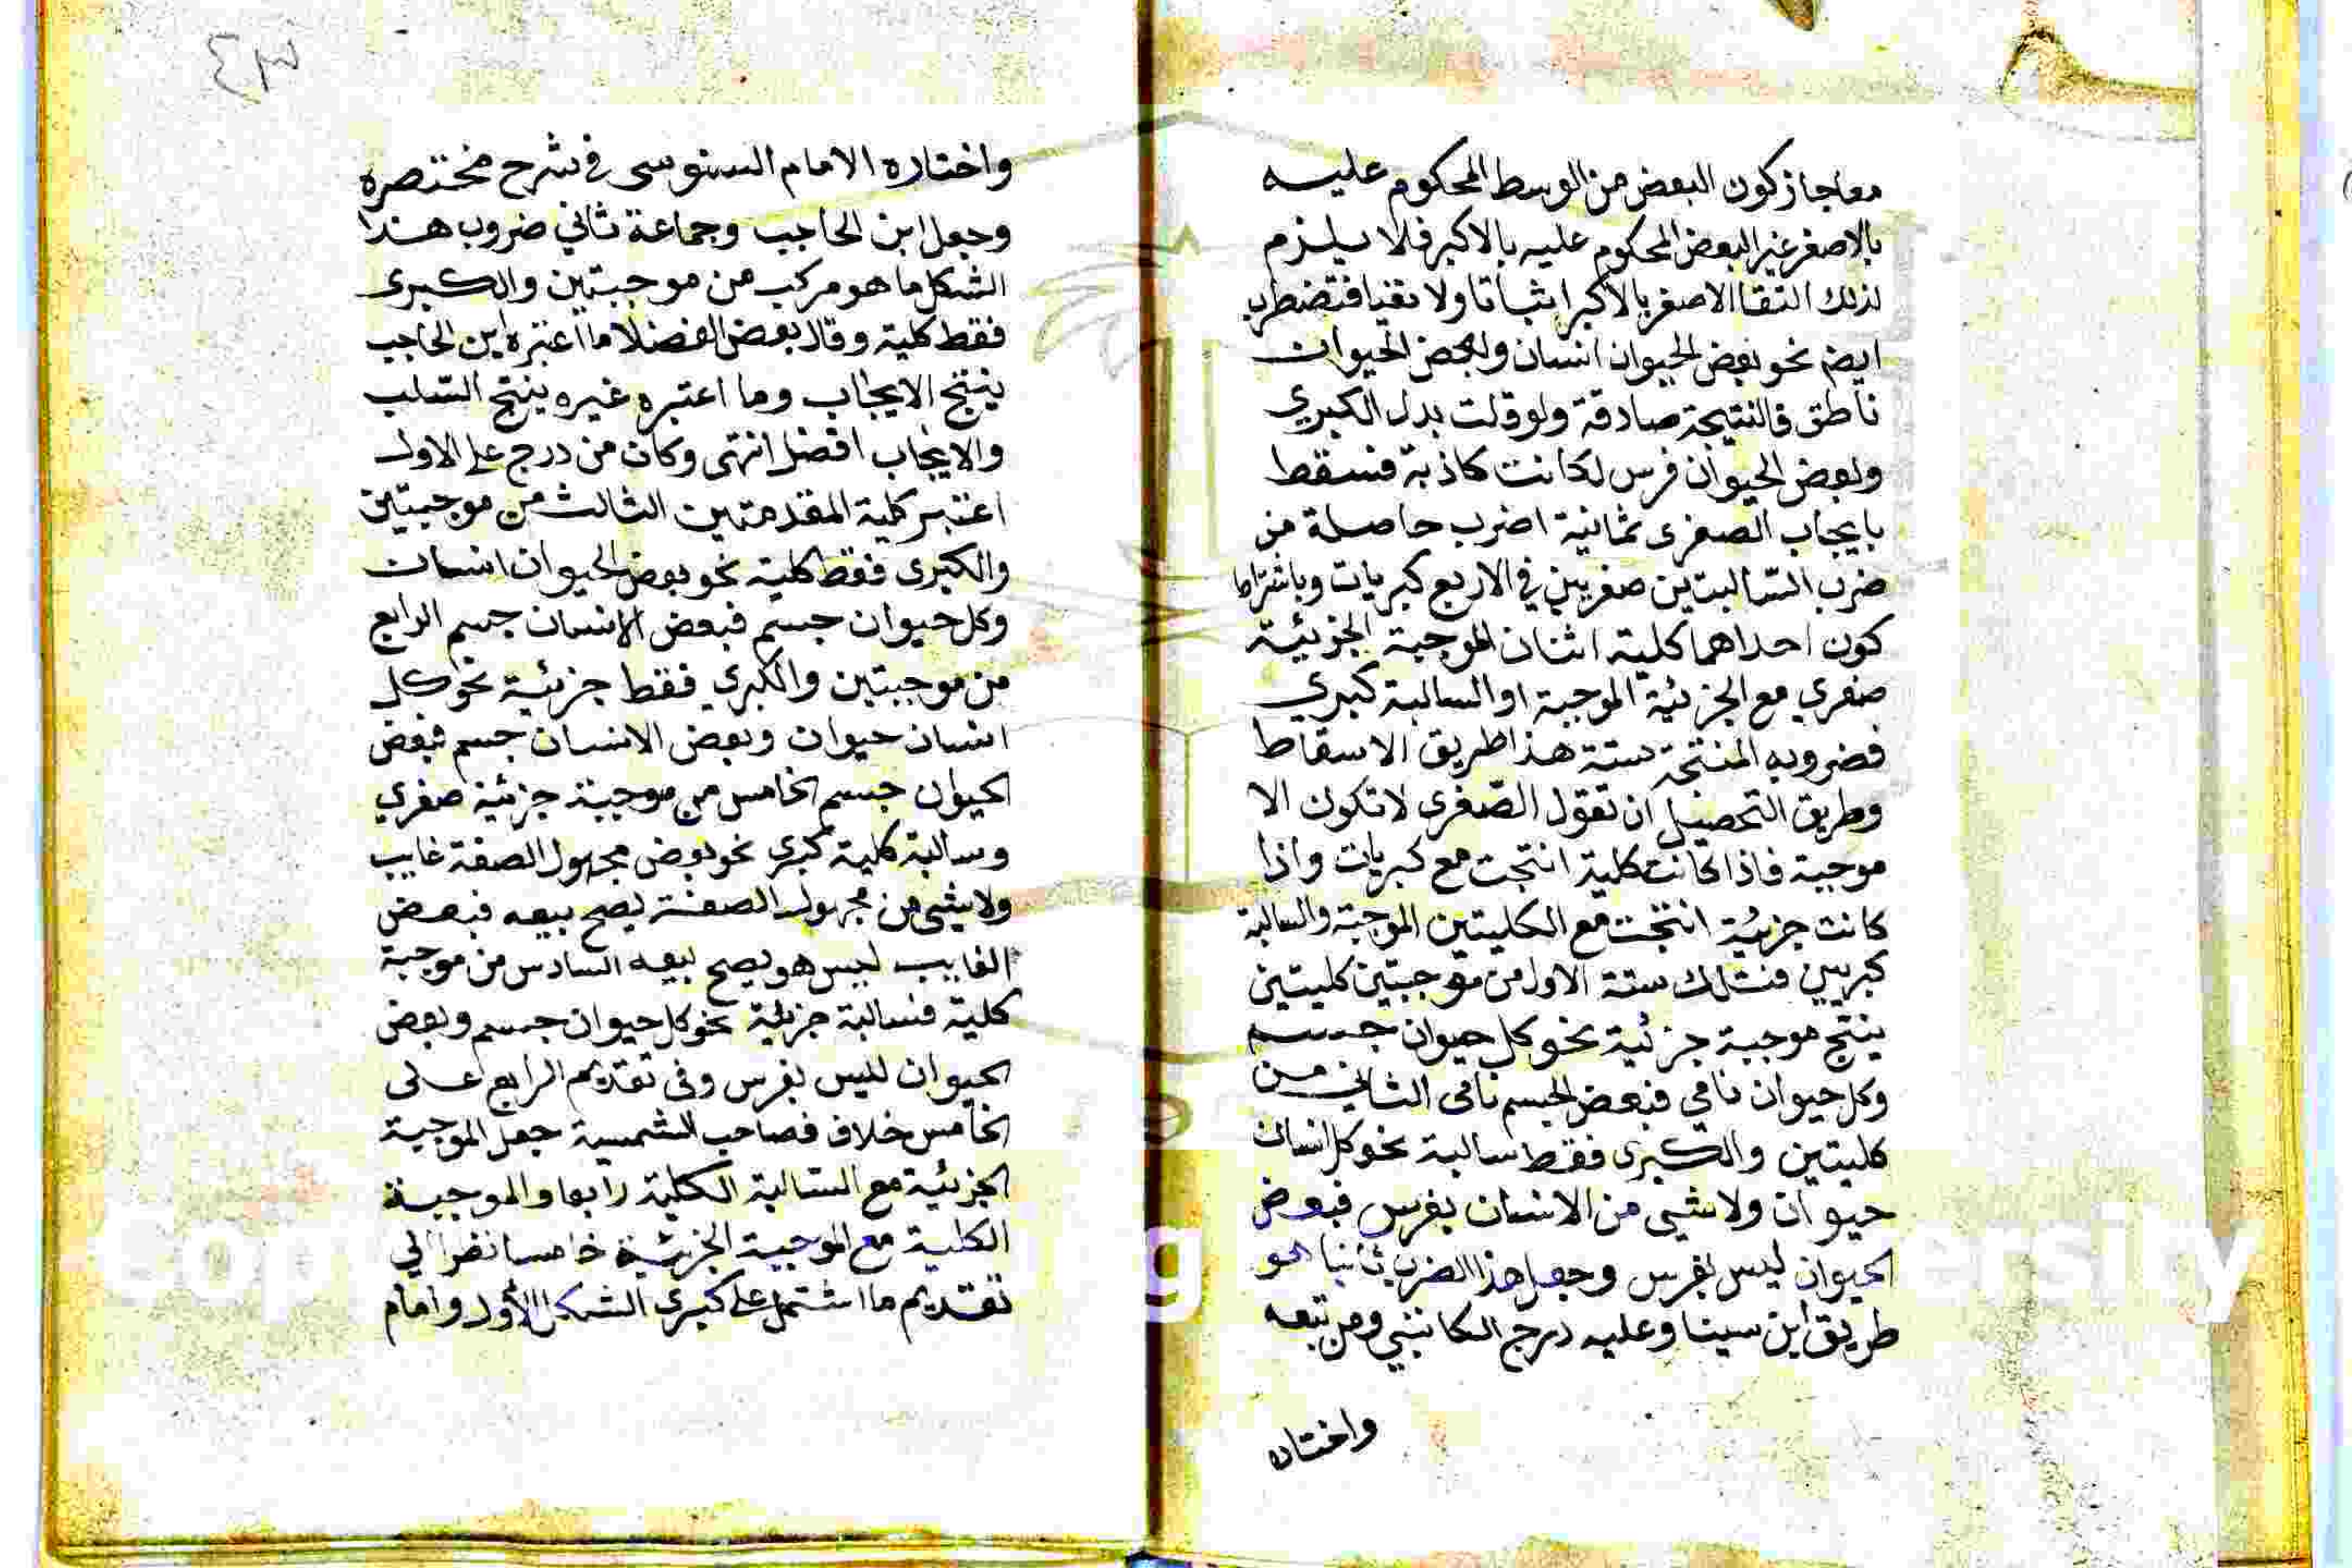 معا جاز كون البعض من الوسط المحكوم عليه
بالاصغر غير البعض المحكوم عليه بالاكبر فلا يلزم
لذلك التقا الاصغر بالاكبر اثباتا ولا نفيا فتضطرب
ايضم نحو بعض الحيوان انسان وبعض الحيوان
ناطق فالنتيجة صادقة ولو قلت بدل الكبري
وبعض الحيوان فرس لكانت كاذبة فسقط
بايجاب الصغرى ثمانية اضرب حاصلة من
ضرب السالبتين صغريين في الاربع كبريات وباشتراط
كون احداهما كلية اثنان الموجبة الجزئية
صغري مع الجزئية الموجبة او السالبة كبري
فضروبه المنتجة ستة هذا طريق الاسقاط
وطريق التحصيل ان تقول الصغرى لا تكون الا
موجبة فاذا كانت كلية انتجت مع كبريات واذا
كانت جزئية انتجت مع الكليتين الموجبة والسالبة
كبريين فتلك ستة الاول من موجبتين كليتين
ينتج موجبة جزئية نحو كل حيوان جسم
وكل حيوان نامي فبعض الجسم نامى الثاني من
كليتين والكبرى فقط سالبة نحو كل انسان
حيوان ولا شي من الانسان بفرس فبعض
الحيوان ليس بفرس وجعل هذا الضرب ثانيا هو
طريق ابن سينا وعليه درج الكاتبي ومن تبعه
واختاره
٤٣
واختاره الامام السنوسى فى شرح مختصره
وجعل ابن الحاجب وجماعة ثاني ضروب هذا
الشكل ما هو مركب من موجبتين والكبرى
فقط كلية وقال بعض الفضلا ما اعتبره ابن الحاجب
ينتج الايجاب وما اعتبره غيره ينتج السلب
والايجاب افضل انتهى وكان من درج على الاول
اعتبر كلية المقدمتين الثالث من موجبتين
والكبرى فقط كلية نحو بعض الحيوان انسان
وكل حيوان جسم فبعض الانسان جسم الرابع
من موجبتين والكبري فقط جزئية نحو كل
انسان حيوان وبعض الانسان جسم فبعض
الحيوان جسم الخامس من موجبة جزئية صغري
وسالبة كلية كبرى نحو بعض مجهول الصفة غايب
ولا شي من مجهول الصفة يصح بيعه فبعض
الغايب ليس هو يصح بيعه السادس من موجبة
كلية فسالبة جزئية نحو كل حيوان جسم وبعض
الحيوان ليس بفرس وفى تقديم الرابع على
الخامس خلاف فصاحب الشمسية جعل الموجبة
الجزئية مع السالبة الكلية رابعا والموجبة
الكلية مع الموجبة الجزئية خامسا نظرا الي
تقديم ما اشتمل على كبرى الشكل الأول وامام